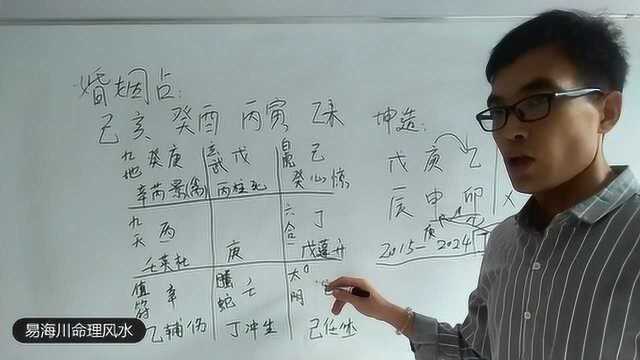 婚姻占:
己亥 癸酉 丙寅 乙未
九地 癸庚 玄武 戊 白虎 己
辛芮景(禽) 丙柱死 癸心惊
九天 丙 庚 六合 丁
壬英杜 戊蓬开
值符 辛 腾蛇 壬 太阴
乙辅伤 丁冲生 己任休
坤造:
戊 庚 乙
辰 申 卯 X
庚
2015-2024
易海川命理风水